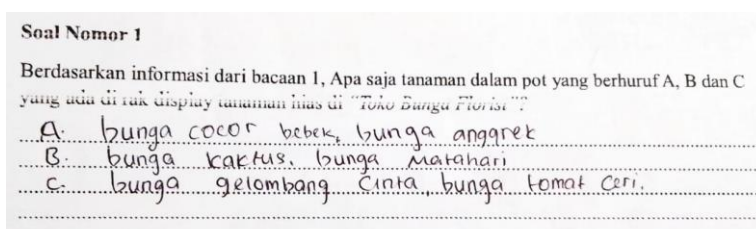 Soal Nomor 1
Berdasarkan informasi dari bacaan 1, Apa saja tanaman dalam pot yang berhuruf A, B dan C
yang ada di rak display tanaman hias di "Toko Bunga Florist"?
A. bunga cocor bebek, bunga anggrek
B. bunga kaktus, bunga Matahari
C. bunga gelombang Cinta, bunga tomat Ceri.